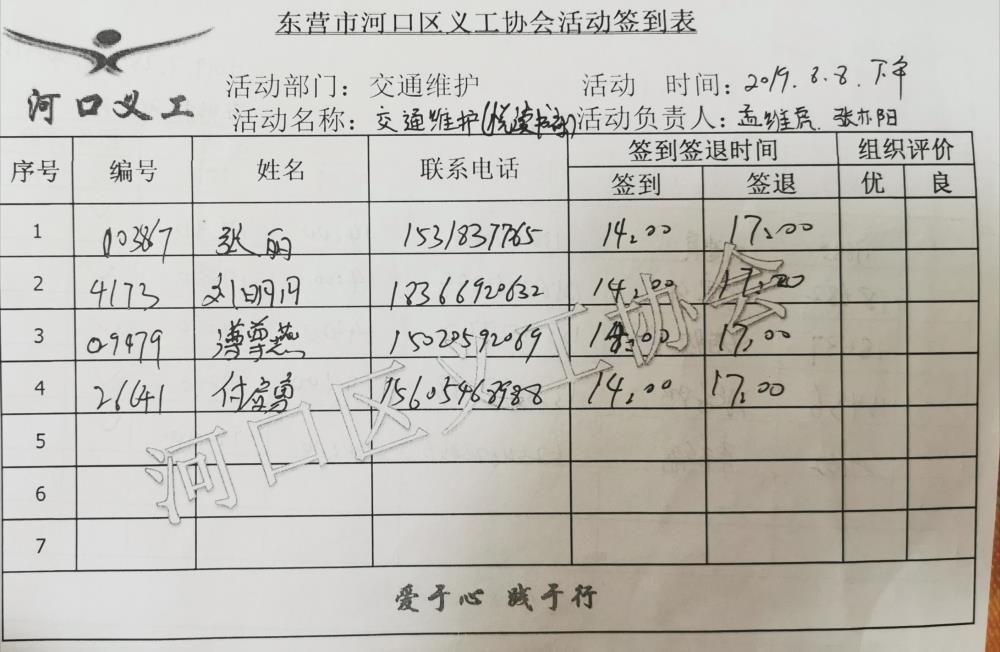 东营市河口区义工协会活动签到表
河口义工
活动部门：交通维护 活动 时间：2019.8.8.下午
活动名称：交通维护(悦读书亭) 活动负责人：孟维虎.张亦阳
序号 编号 姓名 联系电话 签到签退时间 组织评价
签到 签退 优 良
1 003867 张丽 15318377765 14:00 17:00
2 4173 刘明月 18366920632 14:00 17:00
3 09479 燕 15020592089 14:00 17:00
4 26641 付 15605468988 14:00 17:00
5
6
7
爱于心 践于行
河口区义工协会